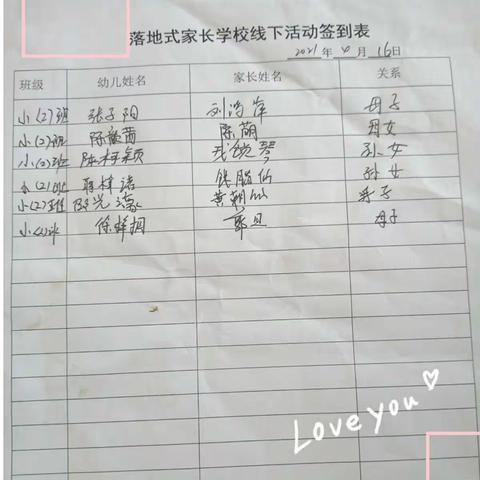 落地式家长学校线下活动签到表
2021年4月16日
班级 幼儿姓名 家长姓名 关系
小(2)班 张子阳 刘 母子
小(2)班 陈 茜 陈萌 母女
小(2)班 陈柯颖 琴 孙女
小(2)班 梓诺 仙 孙女
小(2)班 黄朝仙 子
小(2)班 徐梓桐 郭旦 母子
Love you